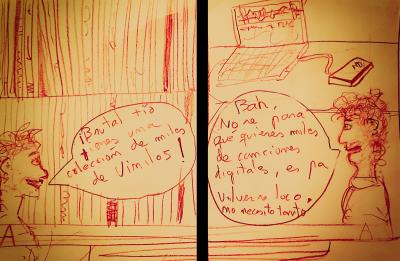 ¡Brutal tío
tienes una
colección de miles
de Vinilos!
HD
Bah,
No se para
qué quieres miles
de canciones
digitales, es pa
volverse loco,
no necesito tanto
A
A